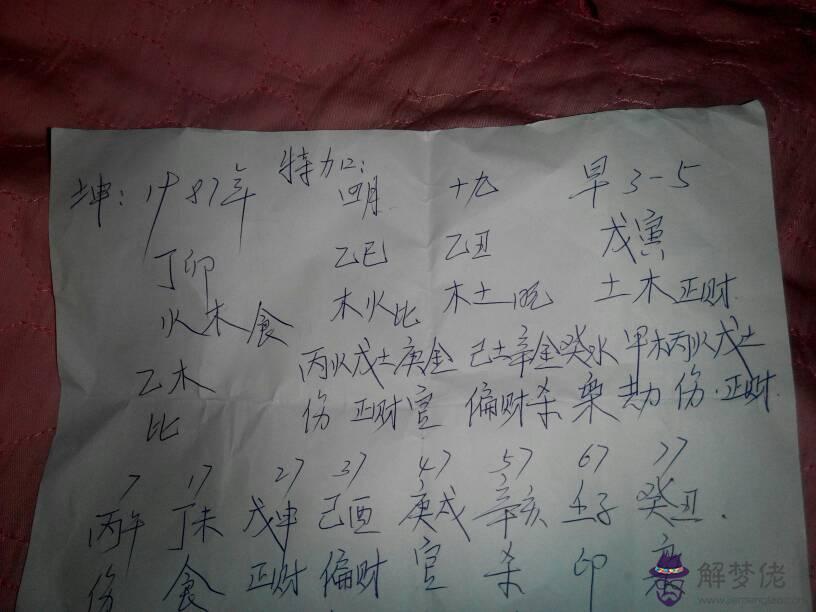 坤：1987年 特加12： 四月 十九 早3-5
丁卯 乙巳 乙丑 戊寅
火木食 木火比 木土 土木正财
乙木 丙火戊土庚金 己土辛金癸水 甲木丙火戊土
比 伤 正财官 偏财杀枭 劫 伤·正财
7 17 27 37 47 57 67 77
丙午 丁未 戊申 己酉 庚戌 辛亥 壬子 癸丑.
伤 食 正财 偏财 官 杀 印
解梦佬
www.jiemenglao.com